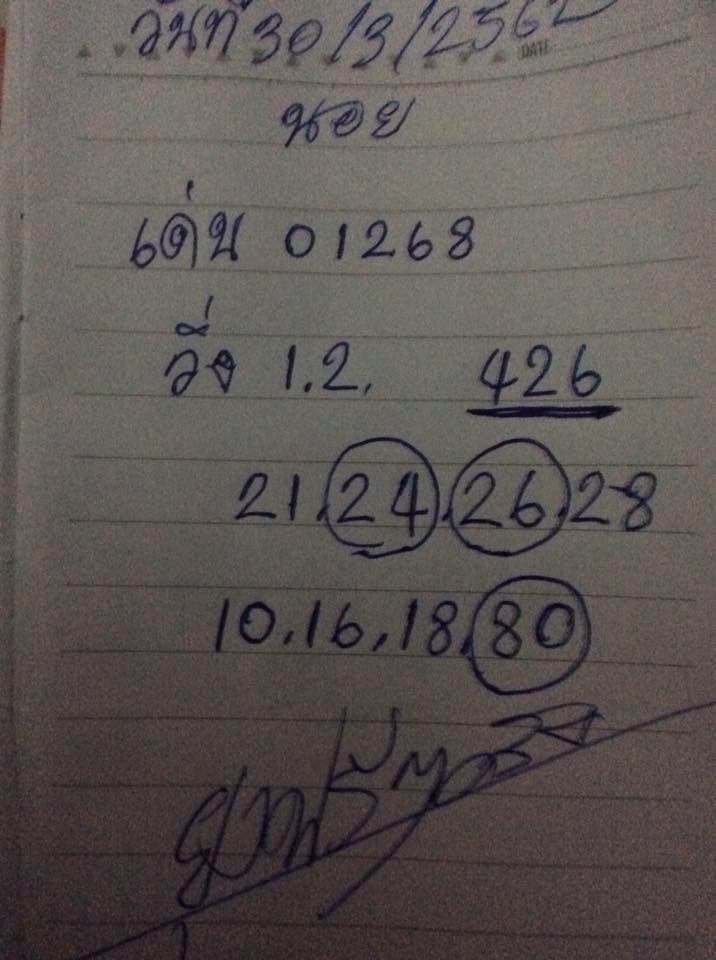 วันที่ 30/3/2562
DATE
นอย
เด่น 01268
วิ่ง 1.2. 426
21.24.26.28
10.16.18.80